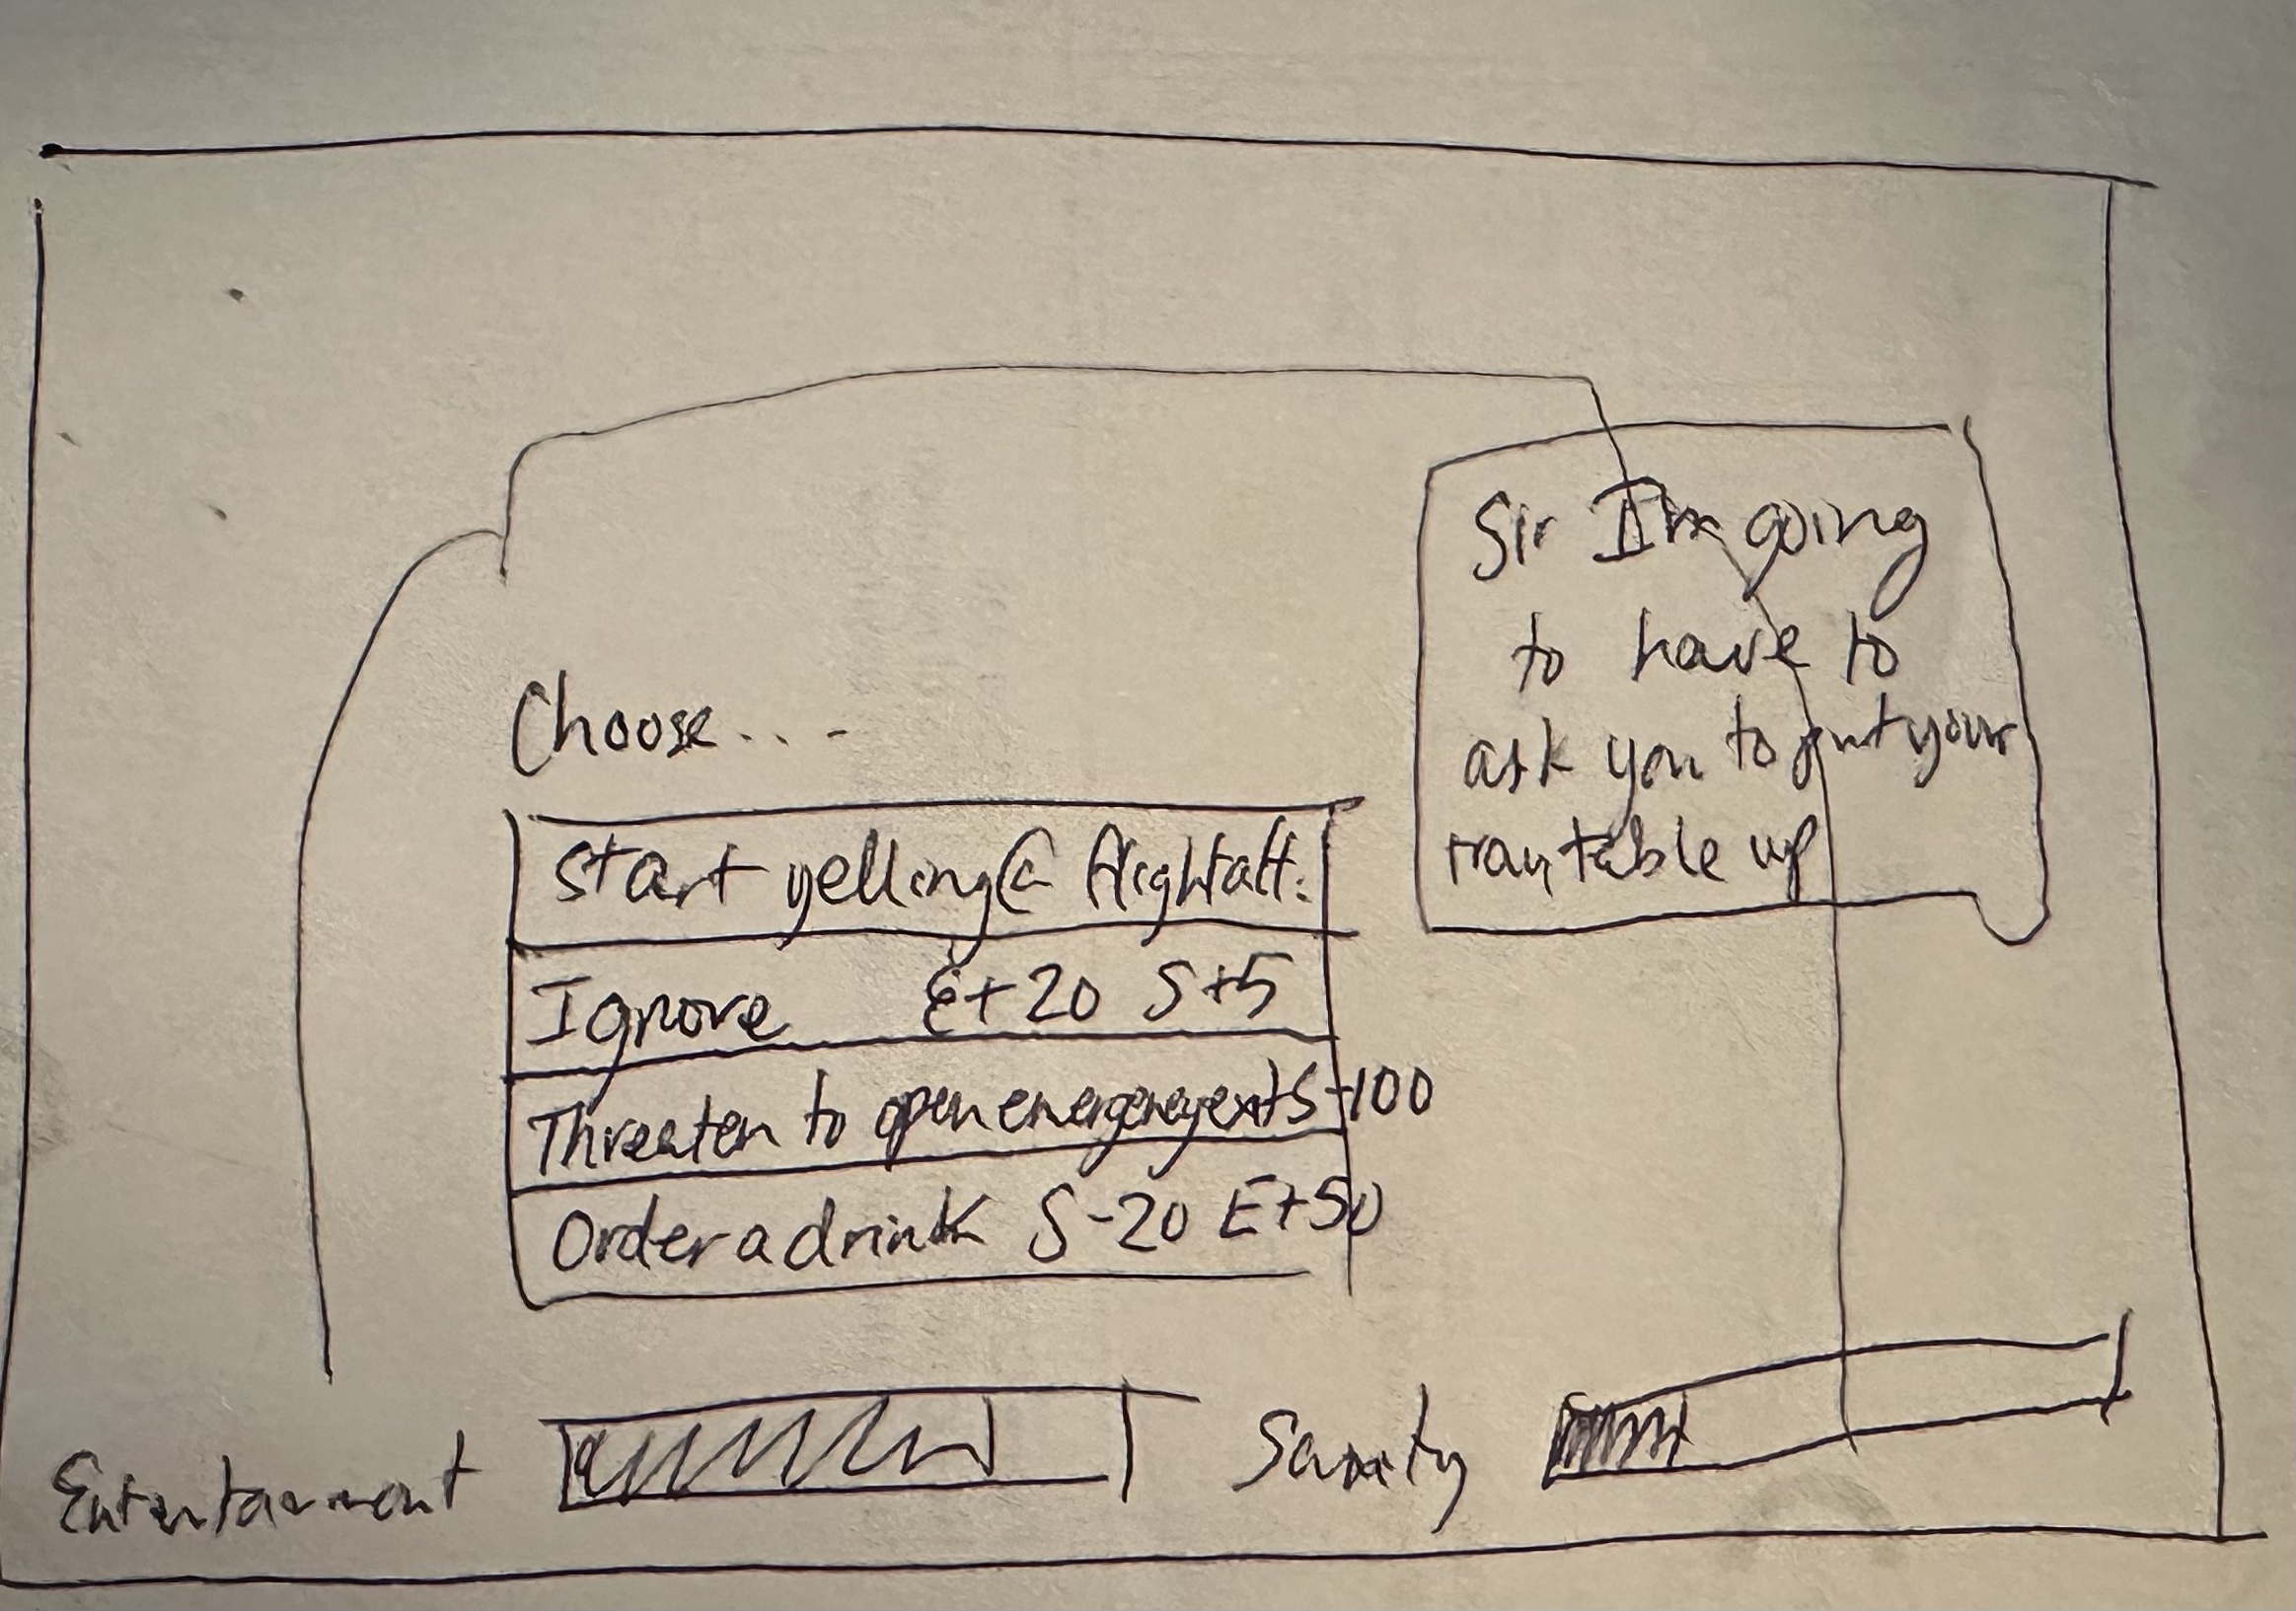 Sir I'm going
to have to
ask you to put your
tray table up
Choose....
start yelling @ flight att.
Ignore E+20 S+5
Threaten to open emergency exit S-100
Order a drink S-20 E+50
Entertainment
Sanity